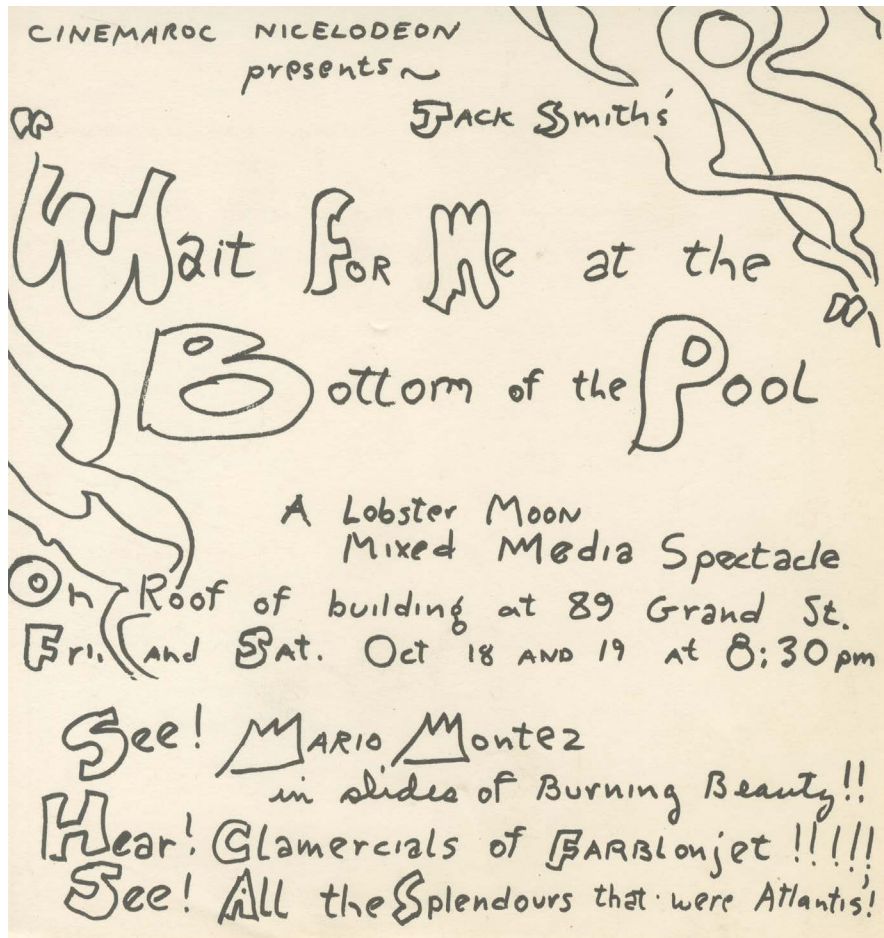 CINEMAROC NICELODEON
presents~
Jack Smith's
"Wait For Me at the
Bottom of the Pool"
A Lobster Moon
Mixed Media Spectacle
On Roof of building at 89 Grand St.
Fri. and Sat. Oct 18 AND 19 at 8:30pm
See! Mario Montez
in slides of Burning Beauty!!
Hear! Glamercials of Farblonjet !!!!!
See! All the Splendours that were Atlantis!